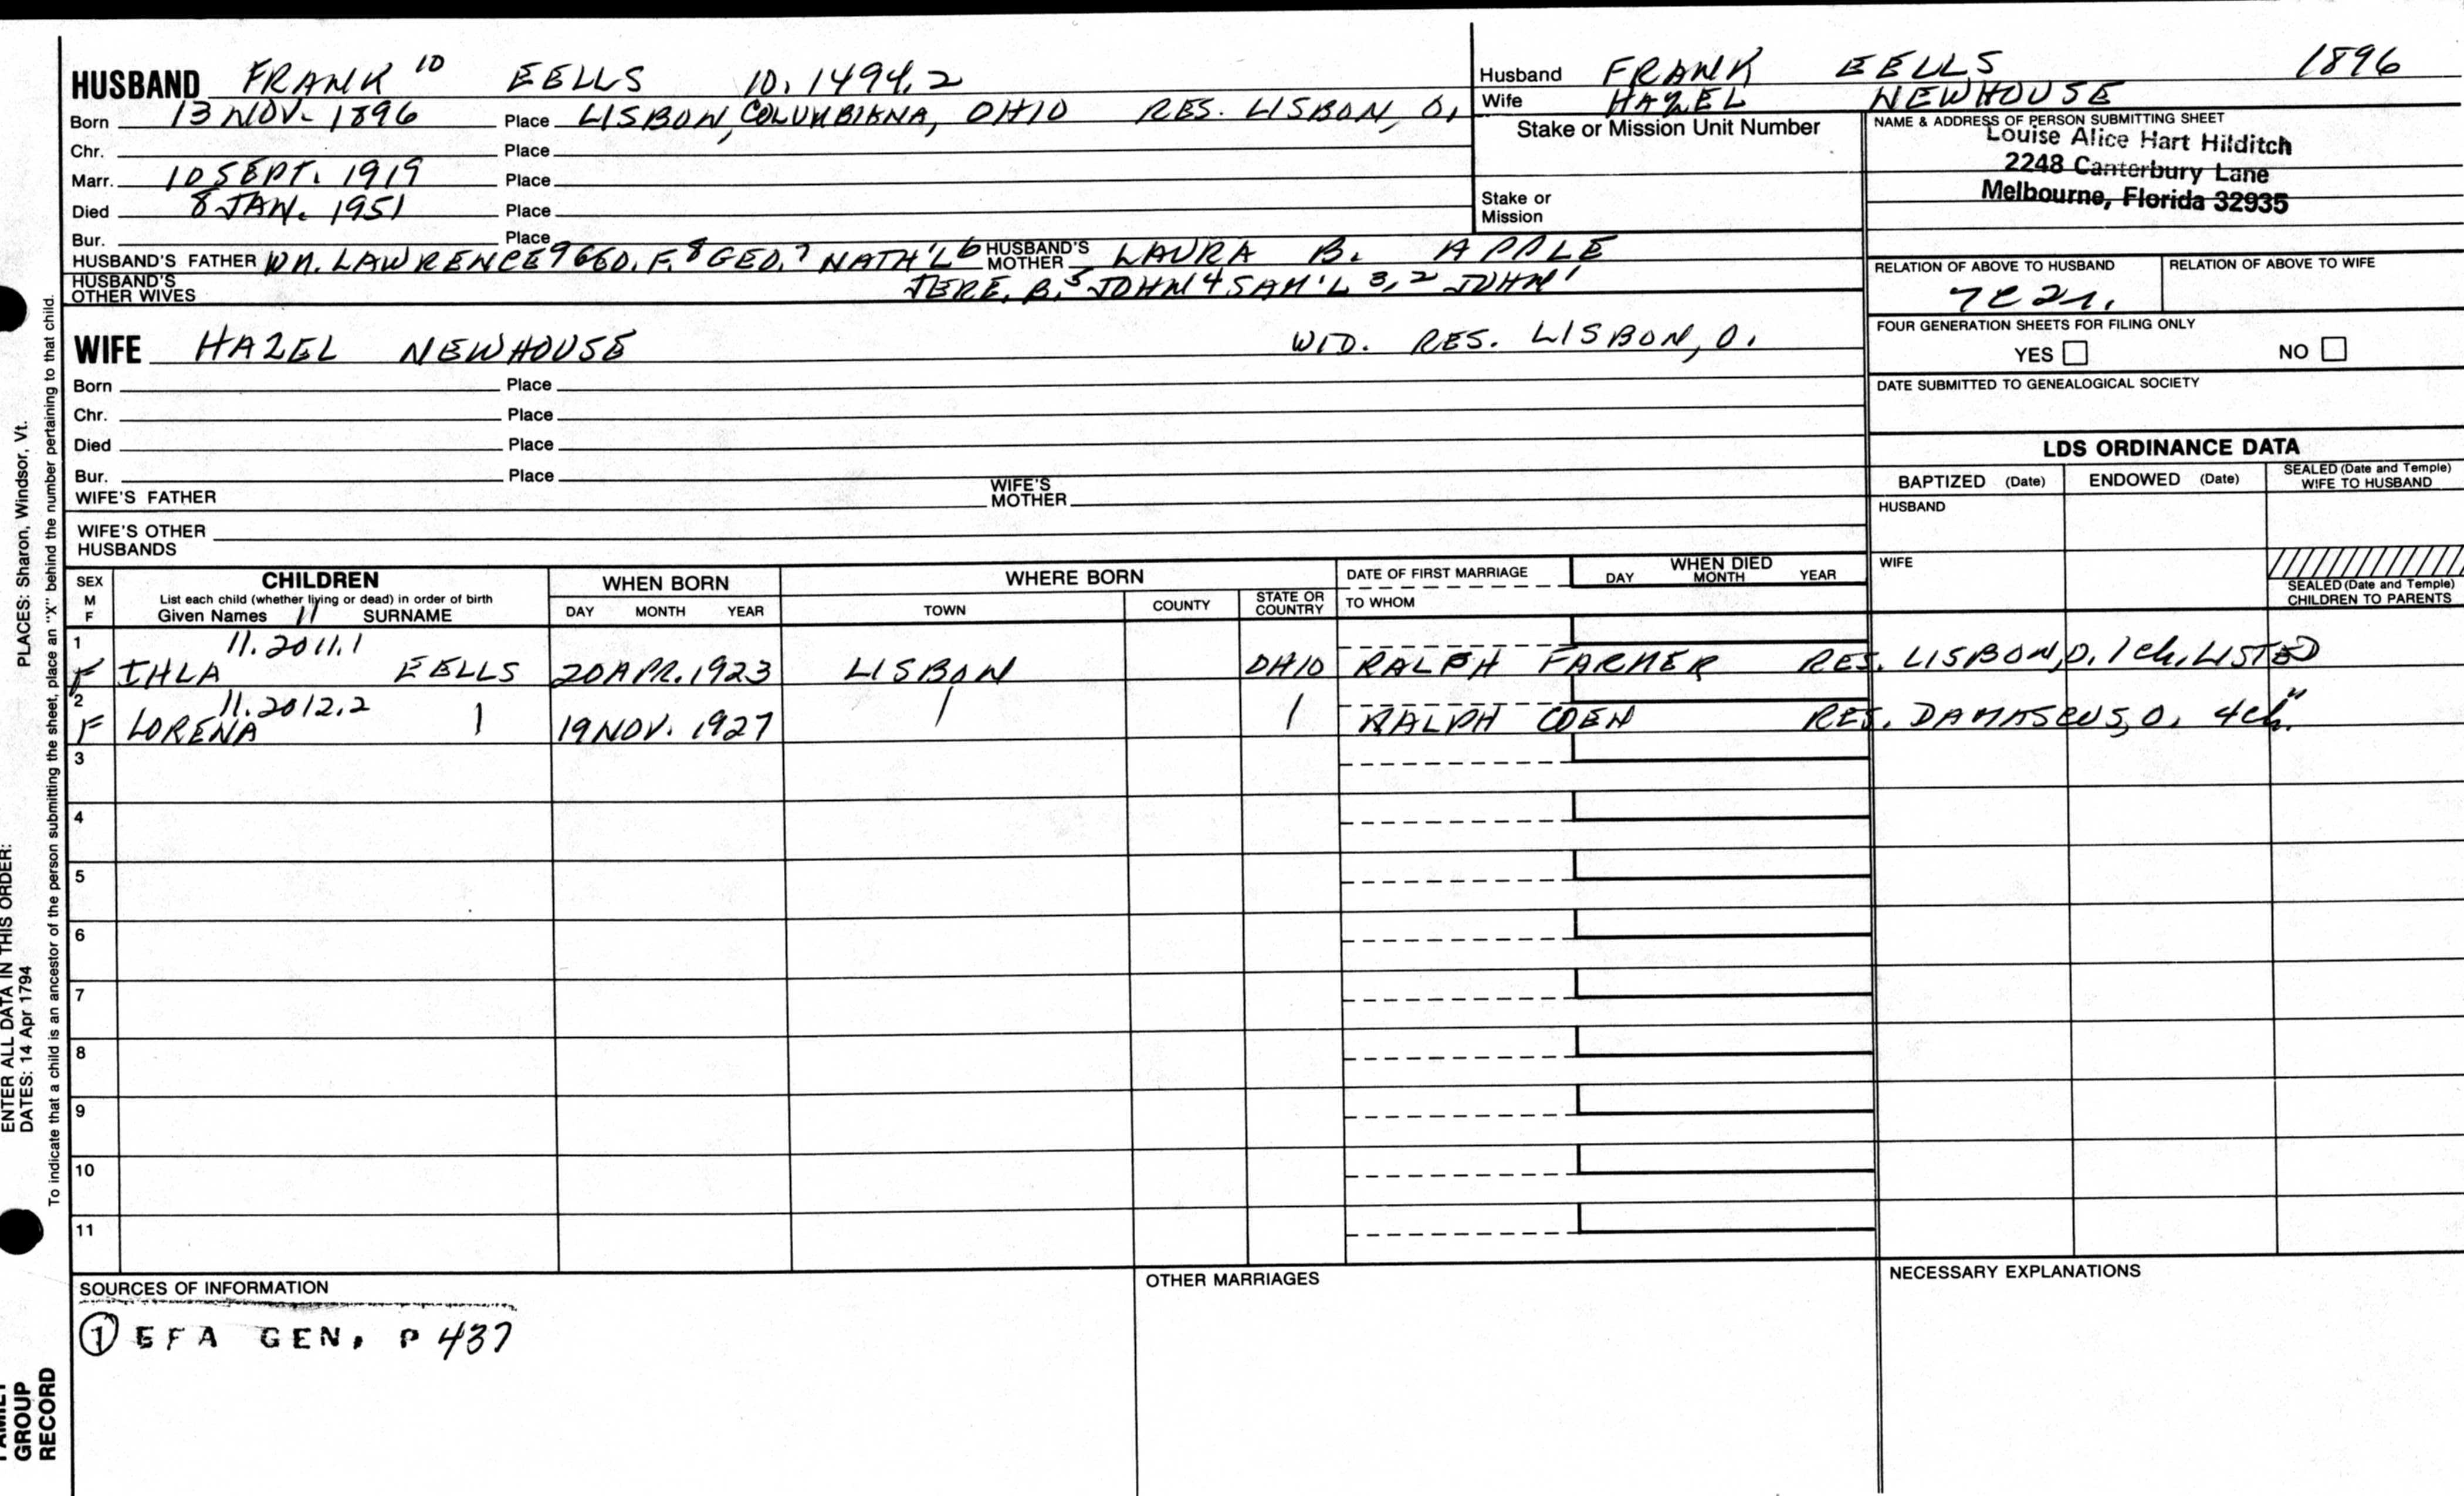 HUSBAND FRANK 10 EELLS 10.1494.2
Born 13 NOV. 1896 Place LISBON, COLUMBIANA, OHIO RES. LISBON, O.
Chr. Place
Marr. 10 SEPT. 1919 Place
Died 8 JAN. 1951 Place
Bur. Place
HUSBAND'S FATHER WM. LAWRENCE 9 GEO. F. 8 GEO. 7 NATH'L 6 HUSBAND'S MOTHER LAURA B. APPLE
HUSBAND'S OTHER WIVES JERE. B. 5 JOHN 4 SAM'L 3, 2 JOHN 1
Husband FRANK EELLS 1896
Wife HAZEL NEWHOUSE
Stake or Mission Unit Number
Stake or Mission
NAME & ADDRESS OF PERSON SUBMITTING SHEET
Louise Alice Hart Hilditch
2248 Canterbury Lane
Melbourne, Florida 32935
RELATION OF ABOVE TO HUSBAND RELATION OF ABOVE TO WIFE
7C2r.
FOUR GENERATION SHEETS FOR FILING ONLY
YES NO
DATE SUBMITTED TO GENEALOGICAL SOCIETY
WIFE HAZEL NEWHOUSE WID. RES. LISBON, O.
Born Place
Chr. Place
Died Place
Bur. Place
WIFE'S FATHER WIFE'S MOTHER
WIFE'S OTHER HUSBANDS
LDS ORDINANCE DATA
BAPTIZED (Date) ENDOWED (Date) SEALED (Date and Temple) WIFE TO HUSBAND
HUSBAND
WIFE
SEALED (Date and Temple) CHILDREN TO PARENTS
SEX M F
CHILDREN
List each child (whether living or dead) in order of birth
Given Names 11 SURNAME
WHEN BORN
DAY MONTH YEAR
WHERE BORN
TOWN COUNTY STATE OR COUNTRY
DATE OF FIRST MARRIAGE
TO WHOM
WHEN DIED
DAY MONTH YEAR
1 11.2011.1
F IHLA EELLS 20 APR. 1923 LISBON OHIO RALPH FARMER RES. LISBON, O. 1 ch. LISTED
2 11.2012.2
F LORENA 19 NOV. 1927 RALPH COEN RES. DAMASCUS, O. 4 ch. "
3
4
5
6
7
8
9
10
11
SOURCES OF INFORMATION
① EFA GEN. P 437
OTHER MARRIAGES
NECESSARY EXPLANATIONS
PLACES: Sharon, Windsor, Vt.
To indicate that a child is an ancestor of the person submitting the sheet, place an "X" behind the number pertaining to that child.
ENTER ALL DATA IN THIS ORDER:
DATES: 14 Apr 1794
FAMILY
GROUP
RECORD